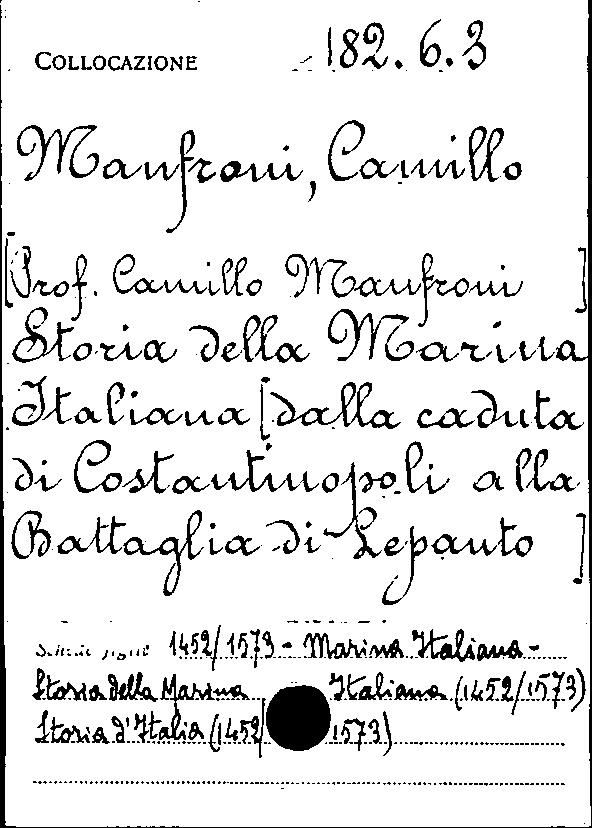 COLLOCAZIONE 182.6.3
Manfroni, Camillo
[Prof. Camillo Manfroni ]
Storia della Marina
Italiana [dalla caduta
di Costantinopoli alla
Battaglia di Lepanto ]
1452/1573 - Marina Italiana -
Storia della Marina Italiana (1452/1573)
Storia d'Italia (1452/1573)